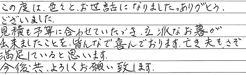 この度は、色々とお世話になりました。ありがとう
ございました。
見積も予算に合わせていただき、立派なお墓が
出来ましたことを、皆んなで喜んでおります。亡き夫もさぞ
満足していると思います。
今後共、よろしくお願い致します。